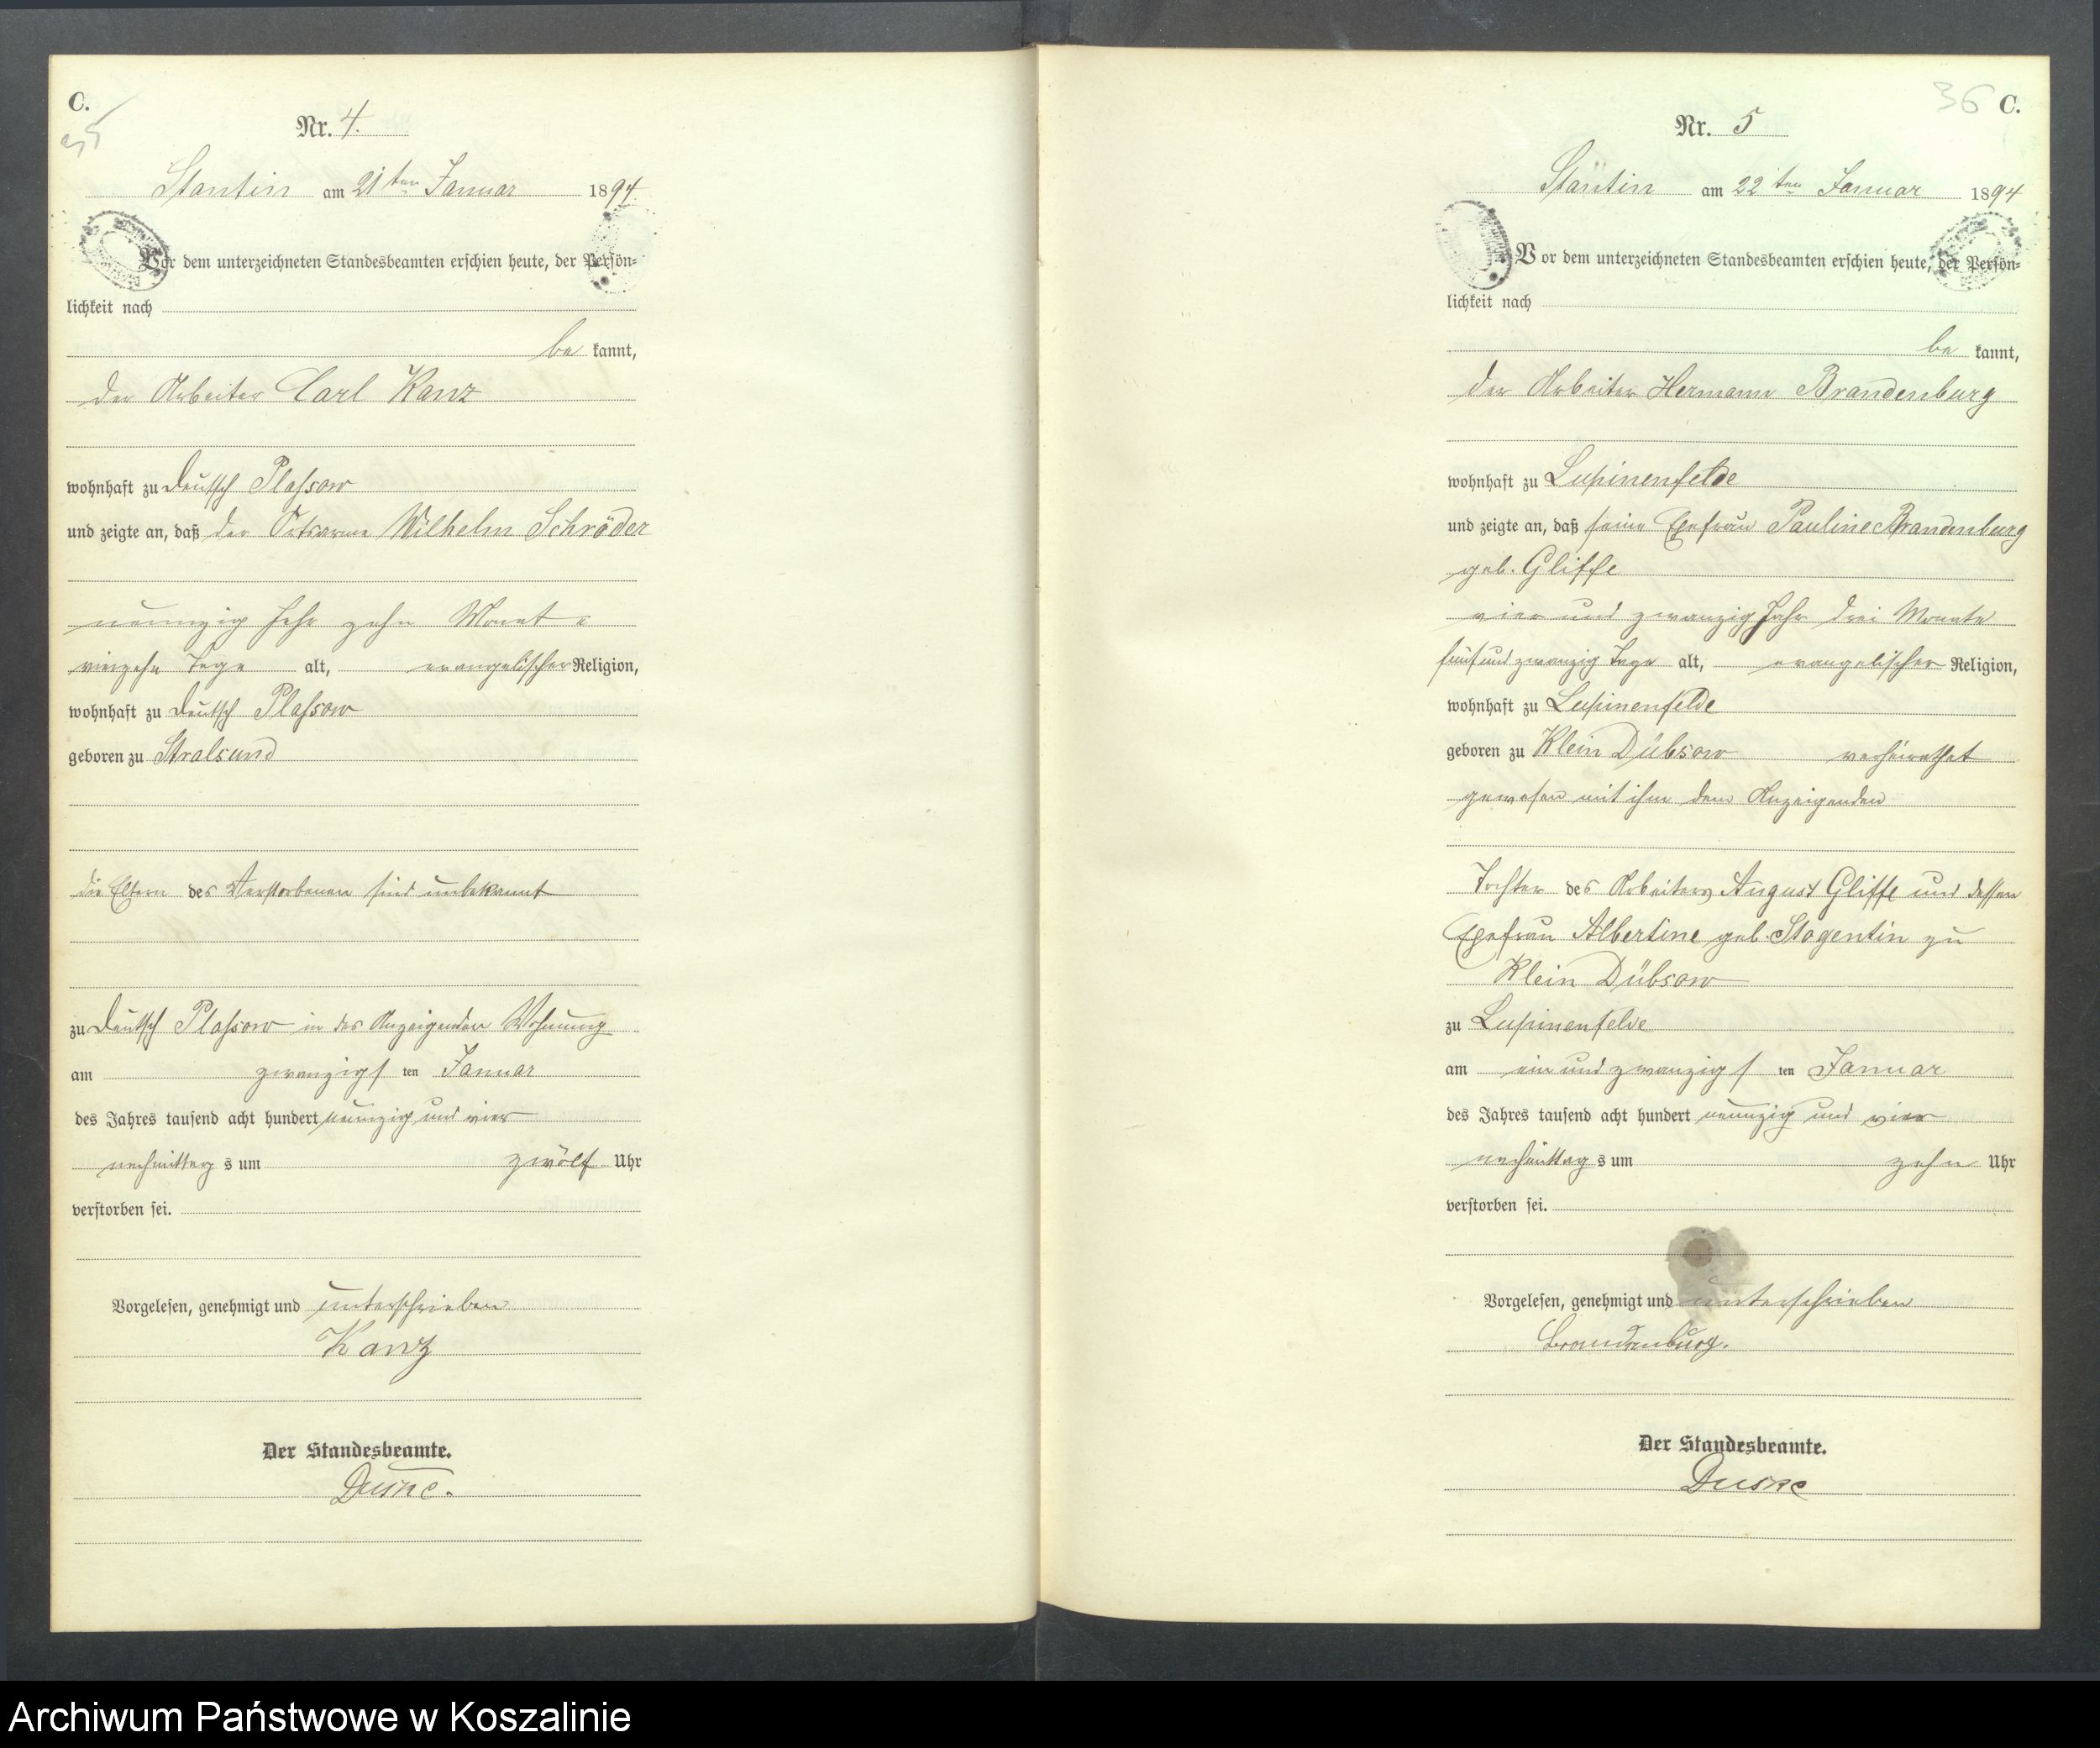 C.
35
Nr. 4.
Stantin am 21ten Januar 1894.
Vor dem unterzeichneten Standesbeamten erschien heute, der Persön-
lichkeit nach
be kannt,
der Arbeiter Carl Kanz
wohnhaft zu Deutsch Plassow
und zeigte an, daß der Ortsarme Wilhelm Schröder
neunzig Jahr zehn Monate
vierzehn Tage alt, evangelischer Religion,
wohnhaft zu Deutsch Plassow
geboren zu Stralsund
die Eltern des Verstorbenen sind unbekannt
zu Deutsch Plassow in des Anzeigenden Wohnung
am zwanzigsten Januar
des Jahres tausend acht hundert neunzig und vier
nachmittag s um zwölf Uhr
verstorben sei.
Vorgelesen, genehmigt und unterschrieben
Kanz
Der Standesbeamte.
36 C.
Nr. 5
Stantin am 22ten Januar 1894
Vor dem unterzeichneten Standesbeamten erschien heute, der Persön-
lichkeit nach
be kannt,
der Arbeiter Hermann Brandenburg
wohnhaft zu Lupinenfelde
und zeigte an, daß seine Ehefrau Pauline Brandenburg
geb. Gliffe
vier und zwanzig Jahr drei Monate
fünf und zwanzig Tage alt, evangelischer Religion,
wohnhaft zu Lupinenfelde
geboren zu Klein Dübsow verheirathet
gewesen mit ihm dem Anzeigenden
Tochter des Arbeiters August Gliffe und dessen
Ehefrau Albertine geb. Stogentin zu
Klein Dübsow
zu Lupinenfelde
am ein und zwanzigsten Januar
des Jahres tausend acht hundert neunzig und vier
nachmittag s um zehn Uhr
verstorben sei.
Vorgelesen, genehmigt und unterschrieben
Brandenburg.
Der Standesbeamte.
Archiwum Państwowe w Koszalinie